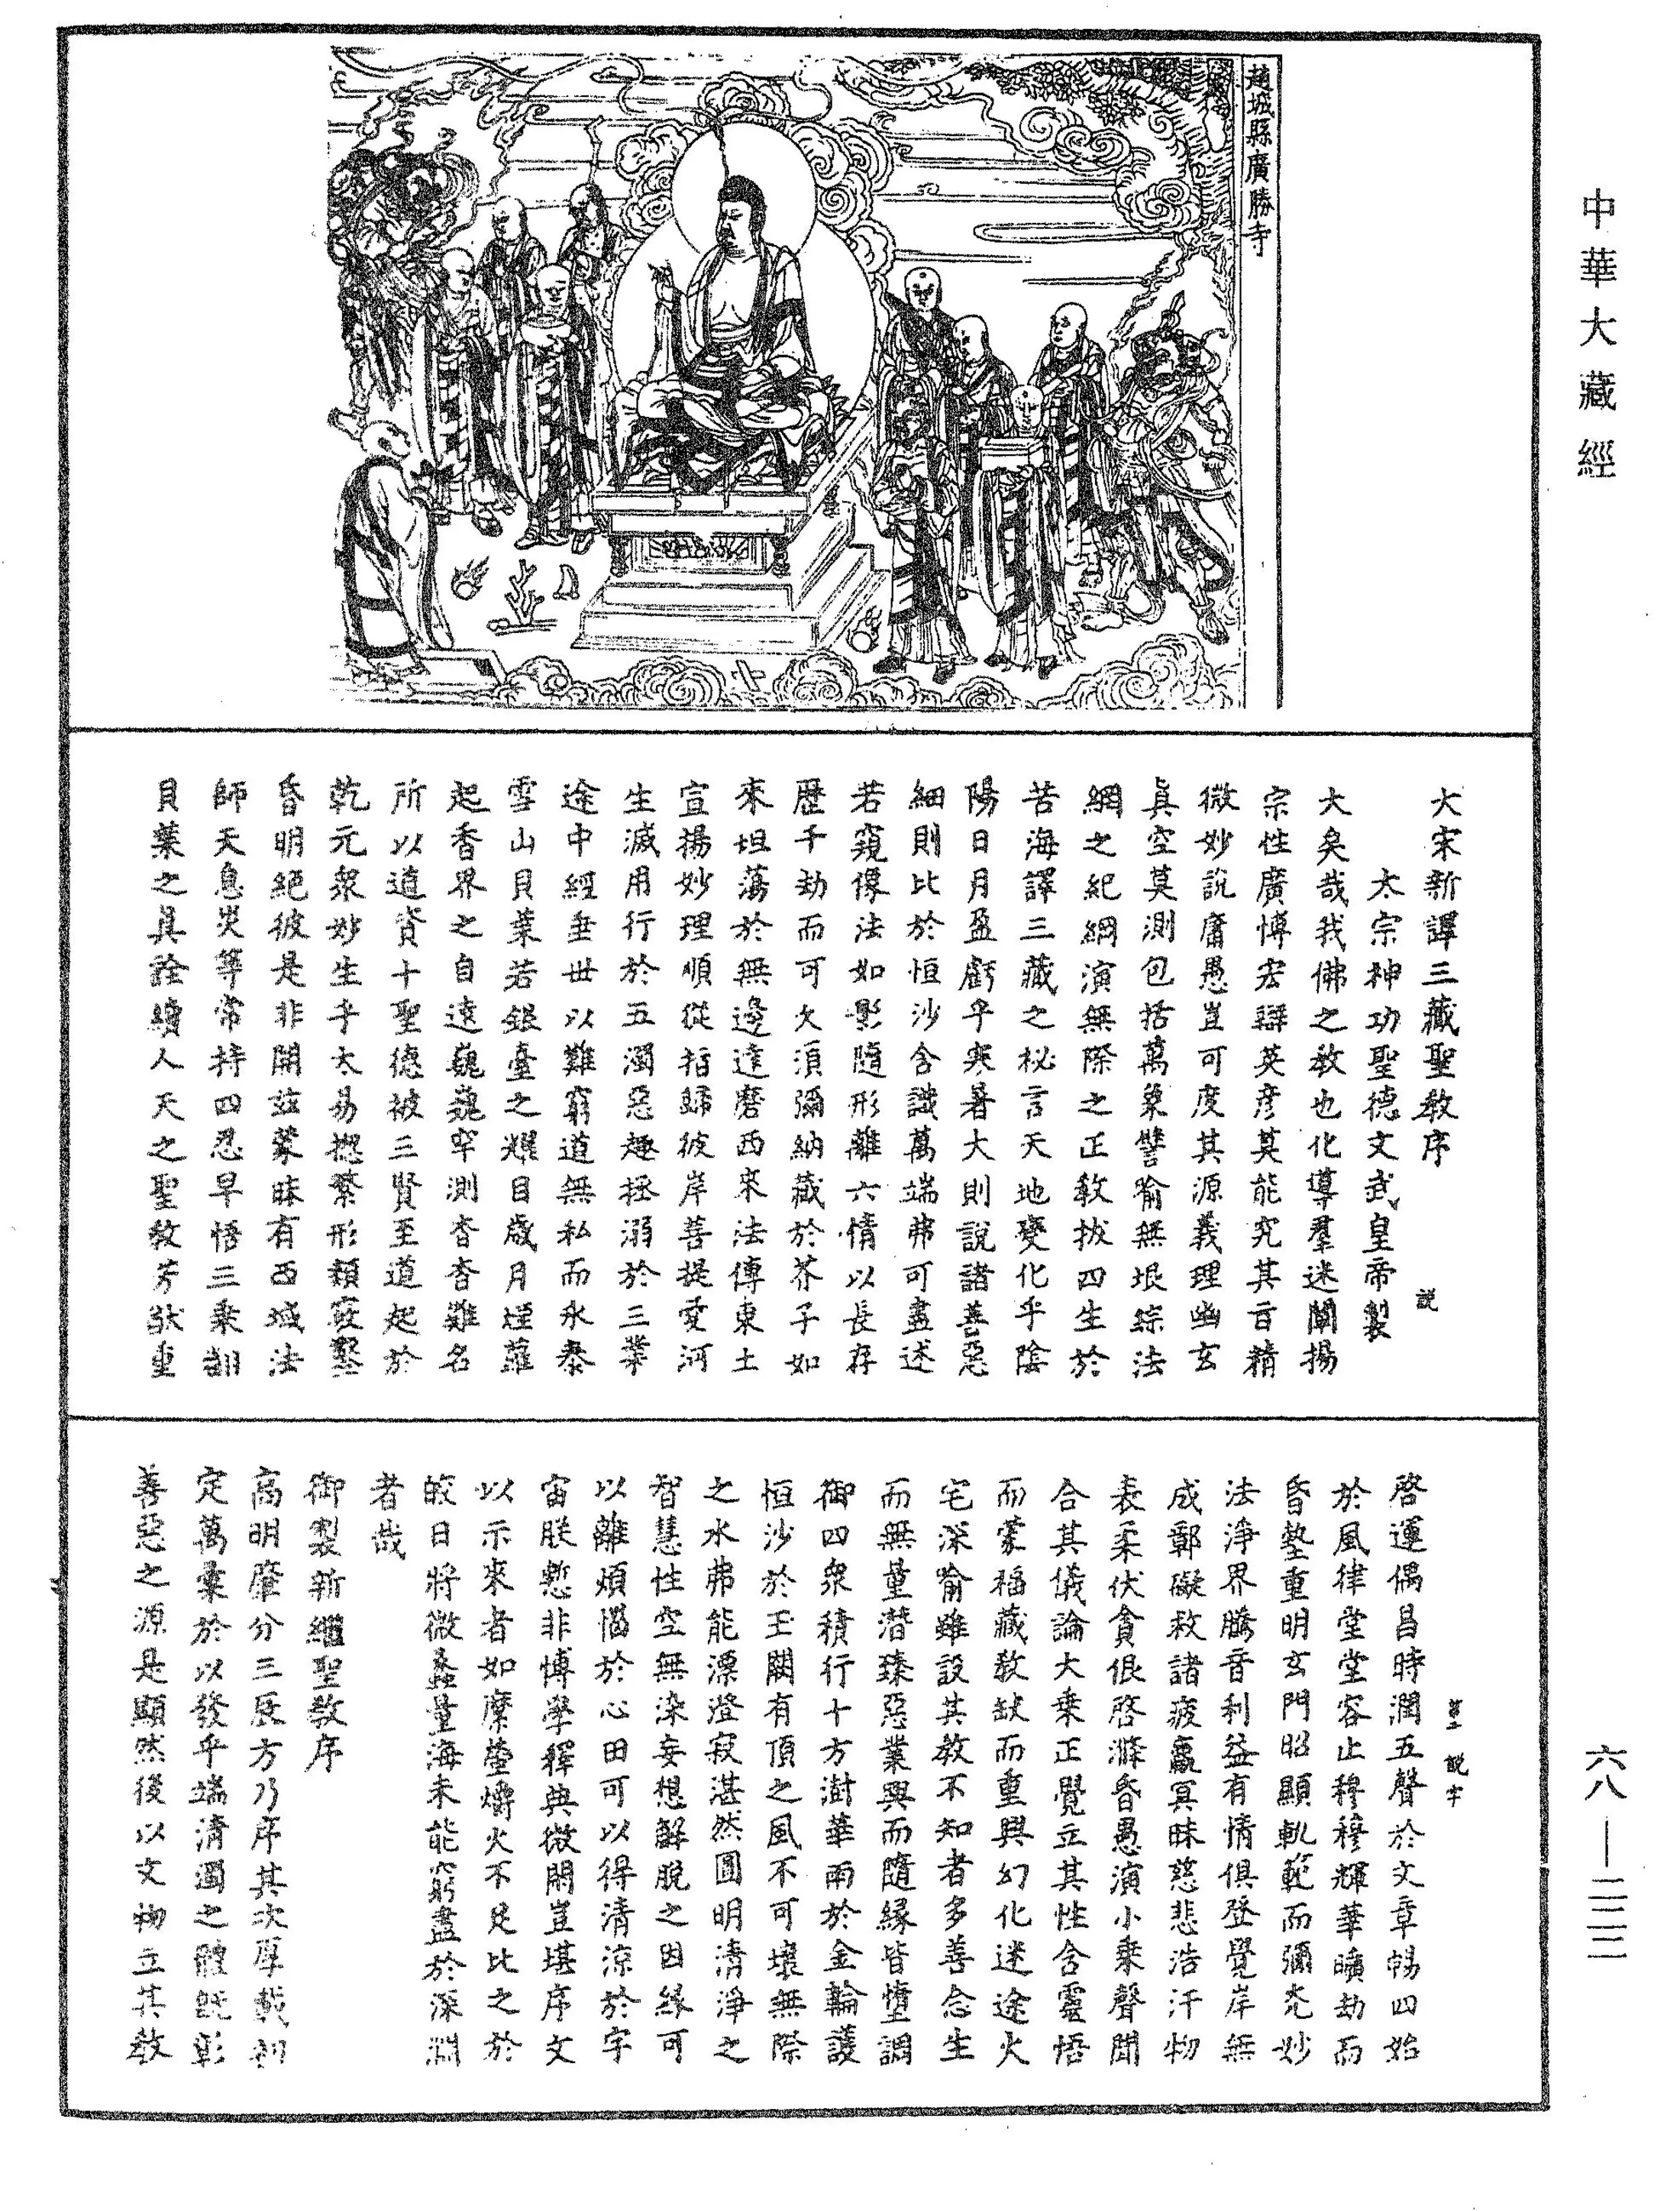 中華大藏經
趙城縣廣勝寺
大宋新譯三藏聖教序
說
太宗神功聖德文武皇帝製
大矣哉我佛之教也化導羣迷闡揚
宗性廣博宏辯英彥莫能究其旨精
微妙說庸愚豈可度其源義理幽玄
真空莫測包括萬象譬喻無垠綜法
網之紀綱演無際之正教拔四生於
苦海譯三藏之秘言天地變化乎陰
陽日月盈虧乎寒暑大則說諸善惡
細則比於恒沙含識萬端弗可盡述
若窺像法如影隨形離六情以長存
歷千劫而可久須彌納藏於芥子如
來坦蕩於無邊達磨西來法傳東土
宣揚妙理順從指歸彼岸菩提愛河
生滅用行於五濁惡趣拯溺於三業
途中經垂世以難窮道無私而永泰
雪山貝葉若銀臺之耀目歲月煙蘿
起香界之自遠巍巍罕測杳杳難名
所以道資十聖德被三賢至道起於
乾元衆妙生乎太易揔繁形類竅鑿
昏明絕彼是非開茲蒙昧有西域法
師天息災等常持四忍早悟三乘翻
貝葉之真詮續人天之聖教芳猷重
第二 說字
啓運偶昌時潤五聲於文章暢四始
於風律堂堂容止穆穆輝華曠劫而
昏墊重明玄門昭顯軌範而彌光妙
法淨界騰音利益有情俱登覺岸無
成鄣礙救諸疲羸冥昧慈悲浩汗物
表柔伏貪佷啓滌昏愚演小乘聲聞
合其儀論大乘正覺立其性含靈悟
而蒙福藏教缺而重興幻化迷途火
宅深喻雖設其教不知者多善念生
而無量潛臻惡業興而隨緣皆墮調
御四衆積行十方澍華雨於金輪護
恒沙於玉闕有頂之風不可壞無際
之水弗能漂澄寂湛然圓明清淨之
智慧性空無染妄想解脫之因緣可
以離煩惱於心田可以得清涼於宇
宙朕慙非博學釋典微閑豈堪序文
以示來者如縻螢爝火不足比之於
皎日將微蠡量海未能窮盡於深淵
者哉
御製新繼聖教序
高明肇分三辰方乃序其次厚載初
定萬彙於以發乎端清濁之體既彰
善惡之源是顯然後以文物立其教
六八—二二二